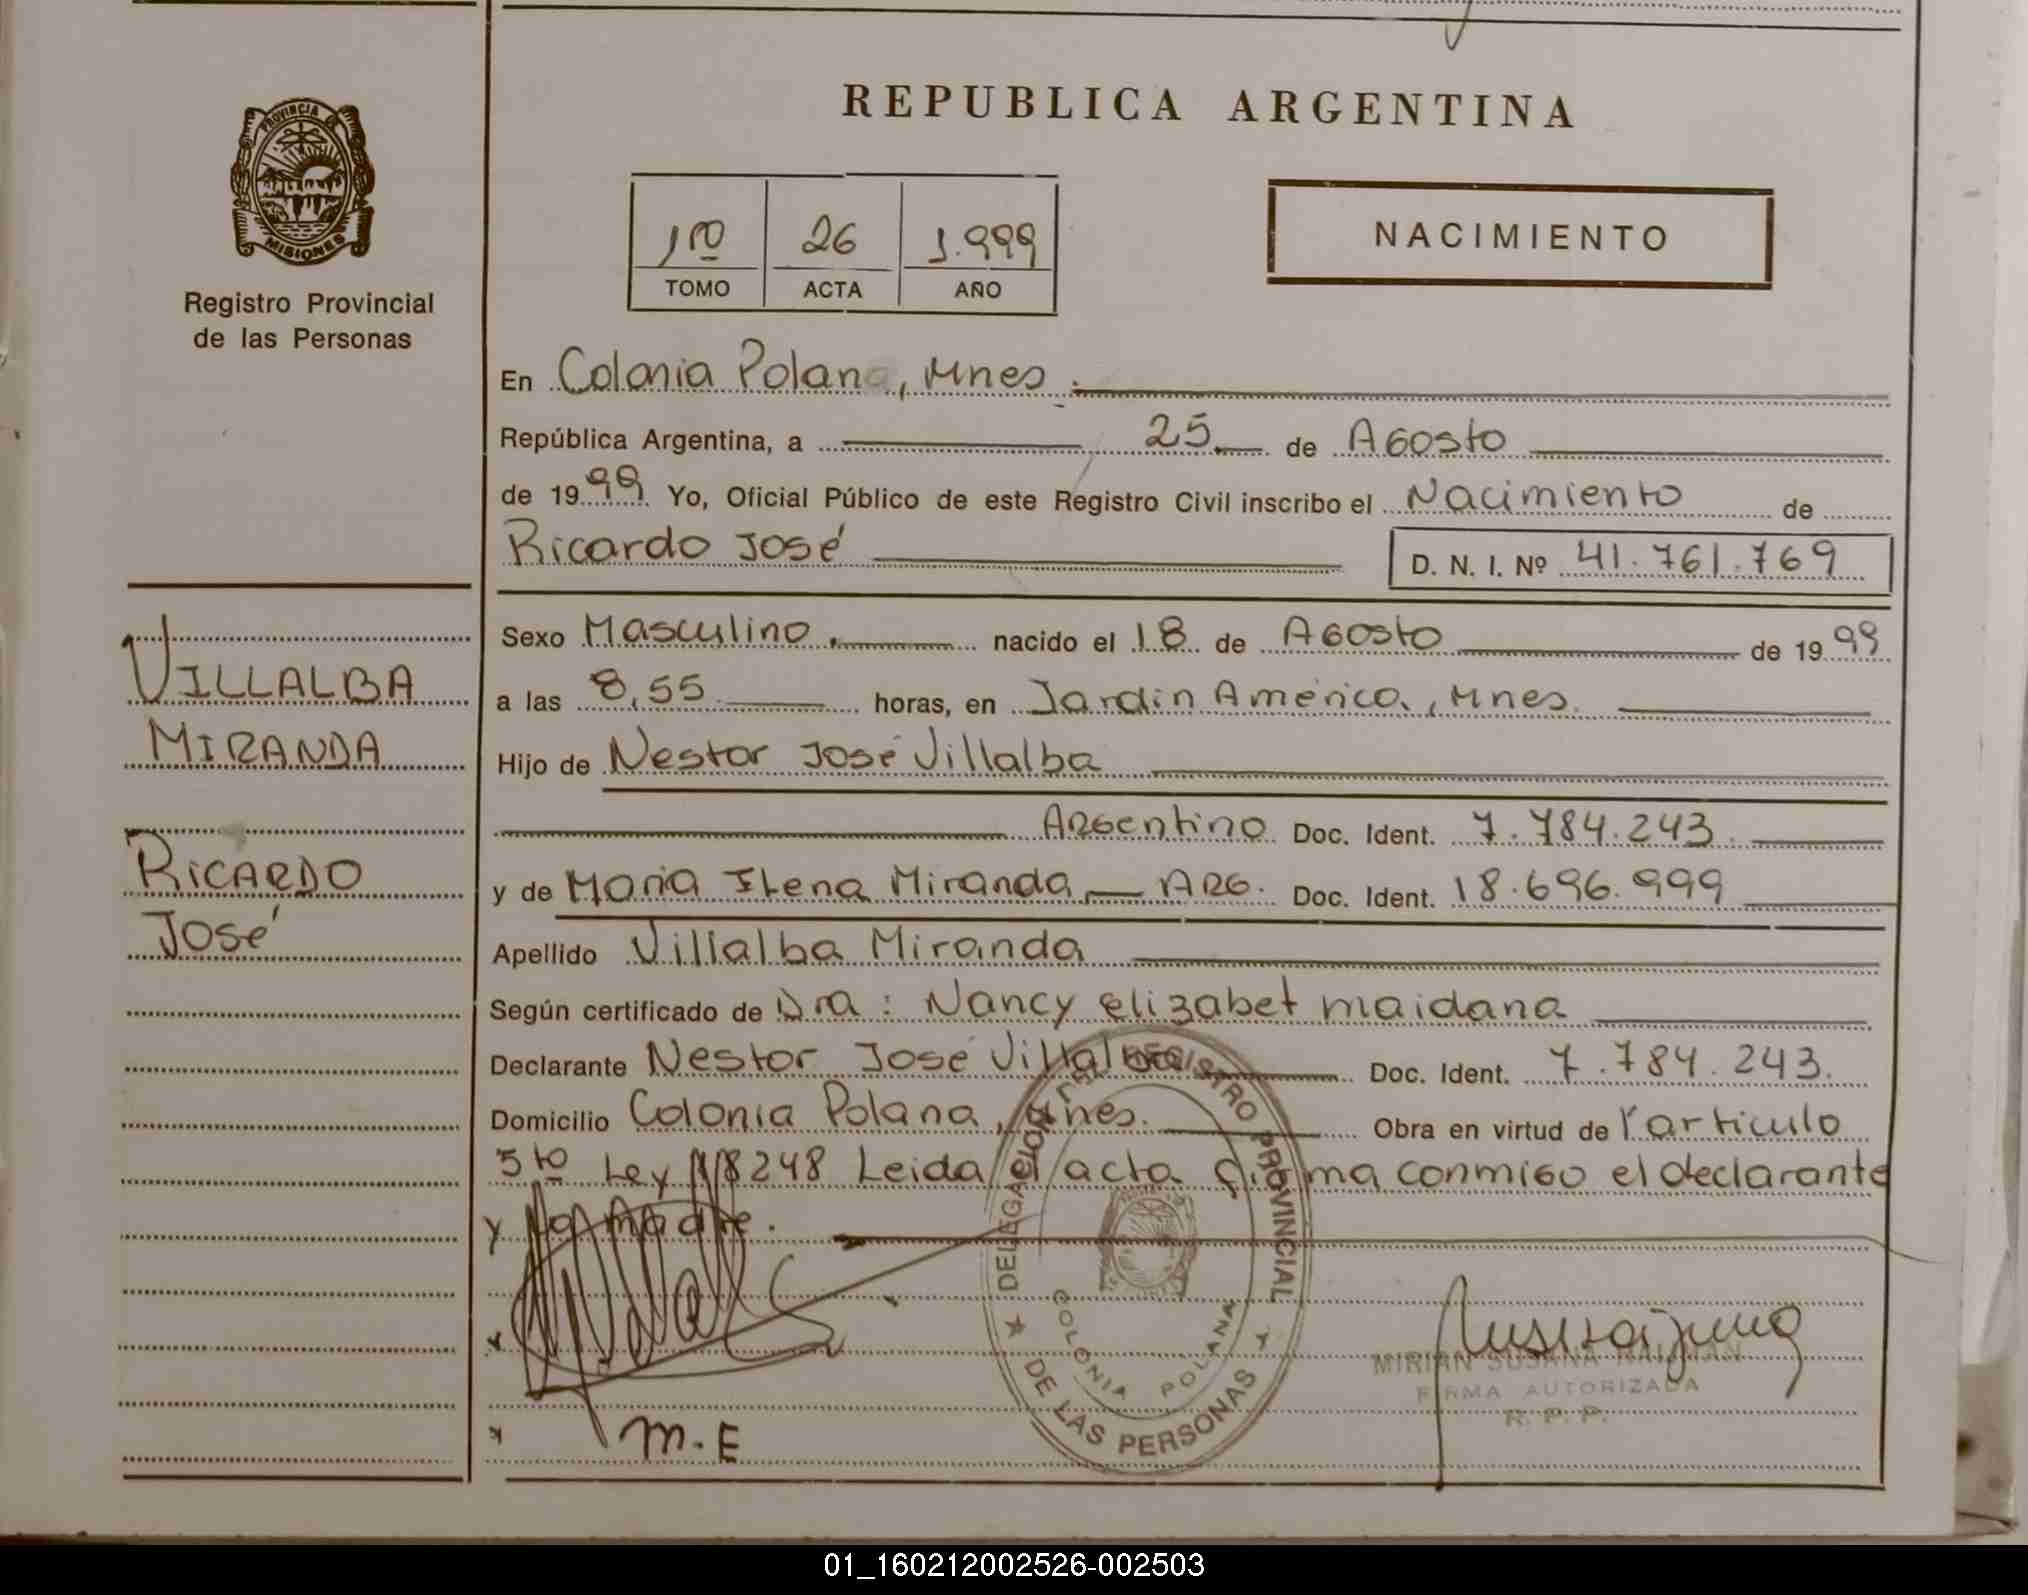 REPUBLICA ARGENTINA
PROVINCIA DE
MISIONES
Registro Provincial
de las Personas
1ro 26 1.999
TOMO ACTA AÑO
NACIMIENTO
En Colonia Polana, Mnes.
República Argentina, a 25 de Agosto
de 1999 Yo, Oficial Público de este Registro Civil inscribo el Nacimiento de
Ricardo José D. N. I. Nº 41.761.769
VILLALBA
MIRANDA
RICARDO
José
Sexo Masculino. nacido el 18 de Agosto de 1999
a las 8,55 horas, en Jardín América, Mnes.
Hijo de Nestor José Villalba
Argentino Doc. Ident. 7.784.243.
y de Maria Elena Miranda ARG. Doc. Ident. 18.696.999
Apellido Villalba Miranda
Según certificado de Dra: Nancy elizabet maidana
Declarante Nestor José Villalba Doc. Ident. 7.784.243.
Domicilio Colonia Polana, Mnes. Obra en virtud de l'articulo
5to Ley 18248 Leida el acta firma conmigo el declarante
y la madre.
DELEGACION DEL REGISTRO PROVINCIAL
DE LAS PERSONAS
COLONIA POLANA
MIRIAN SUSANA
FIRMA AUTORIZADA
R. P. P.
M. E
01_160212002526-002503